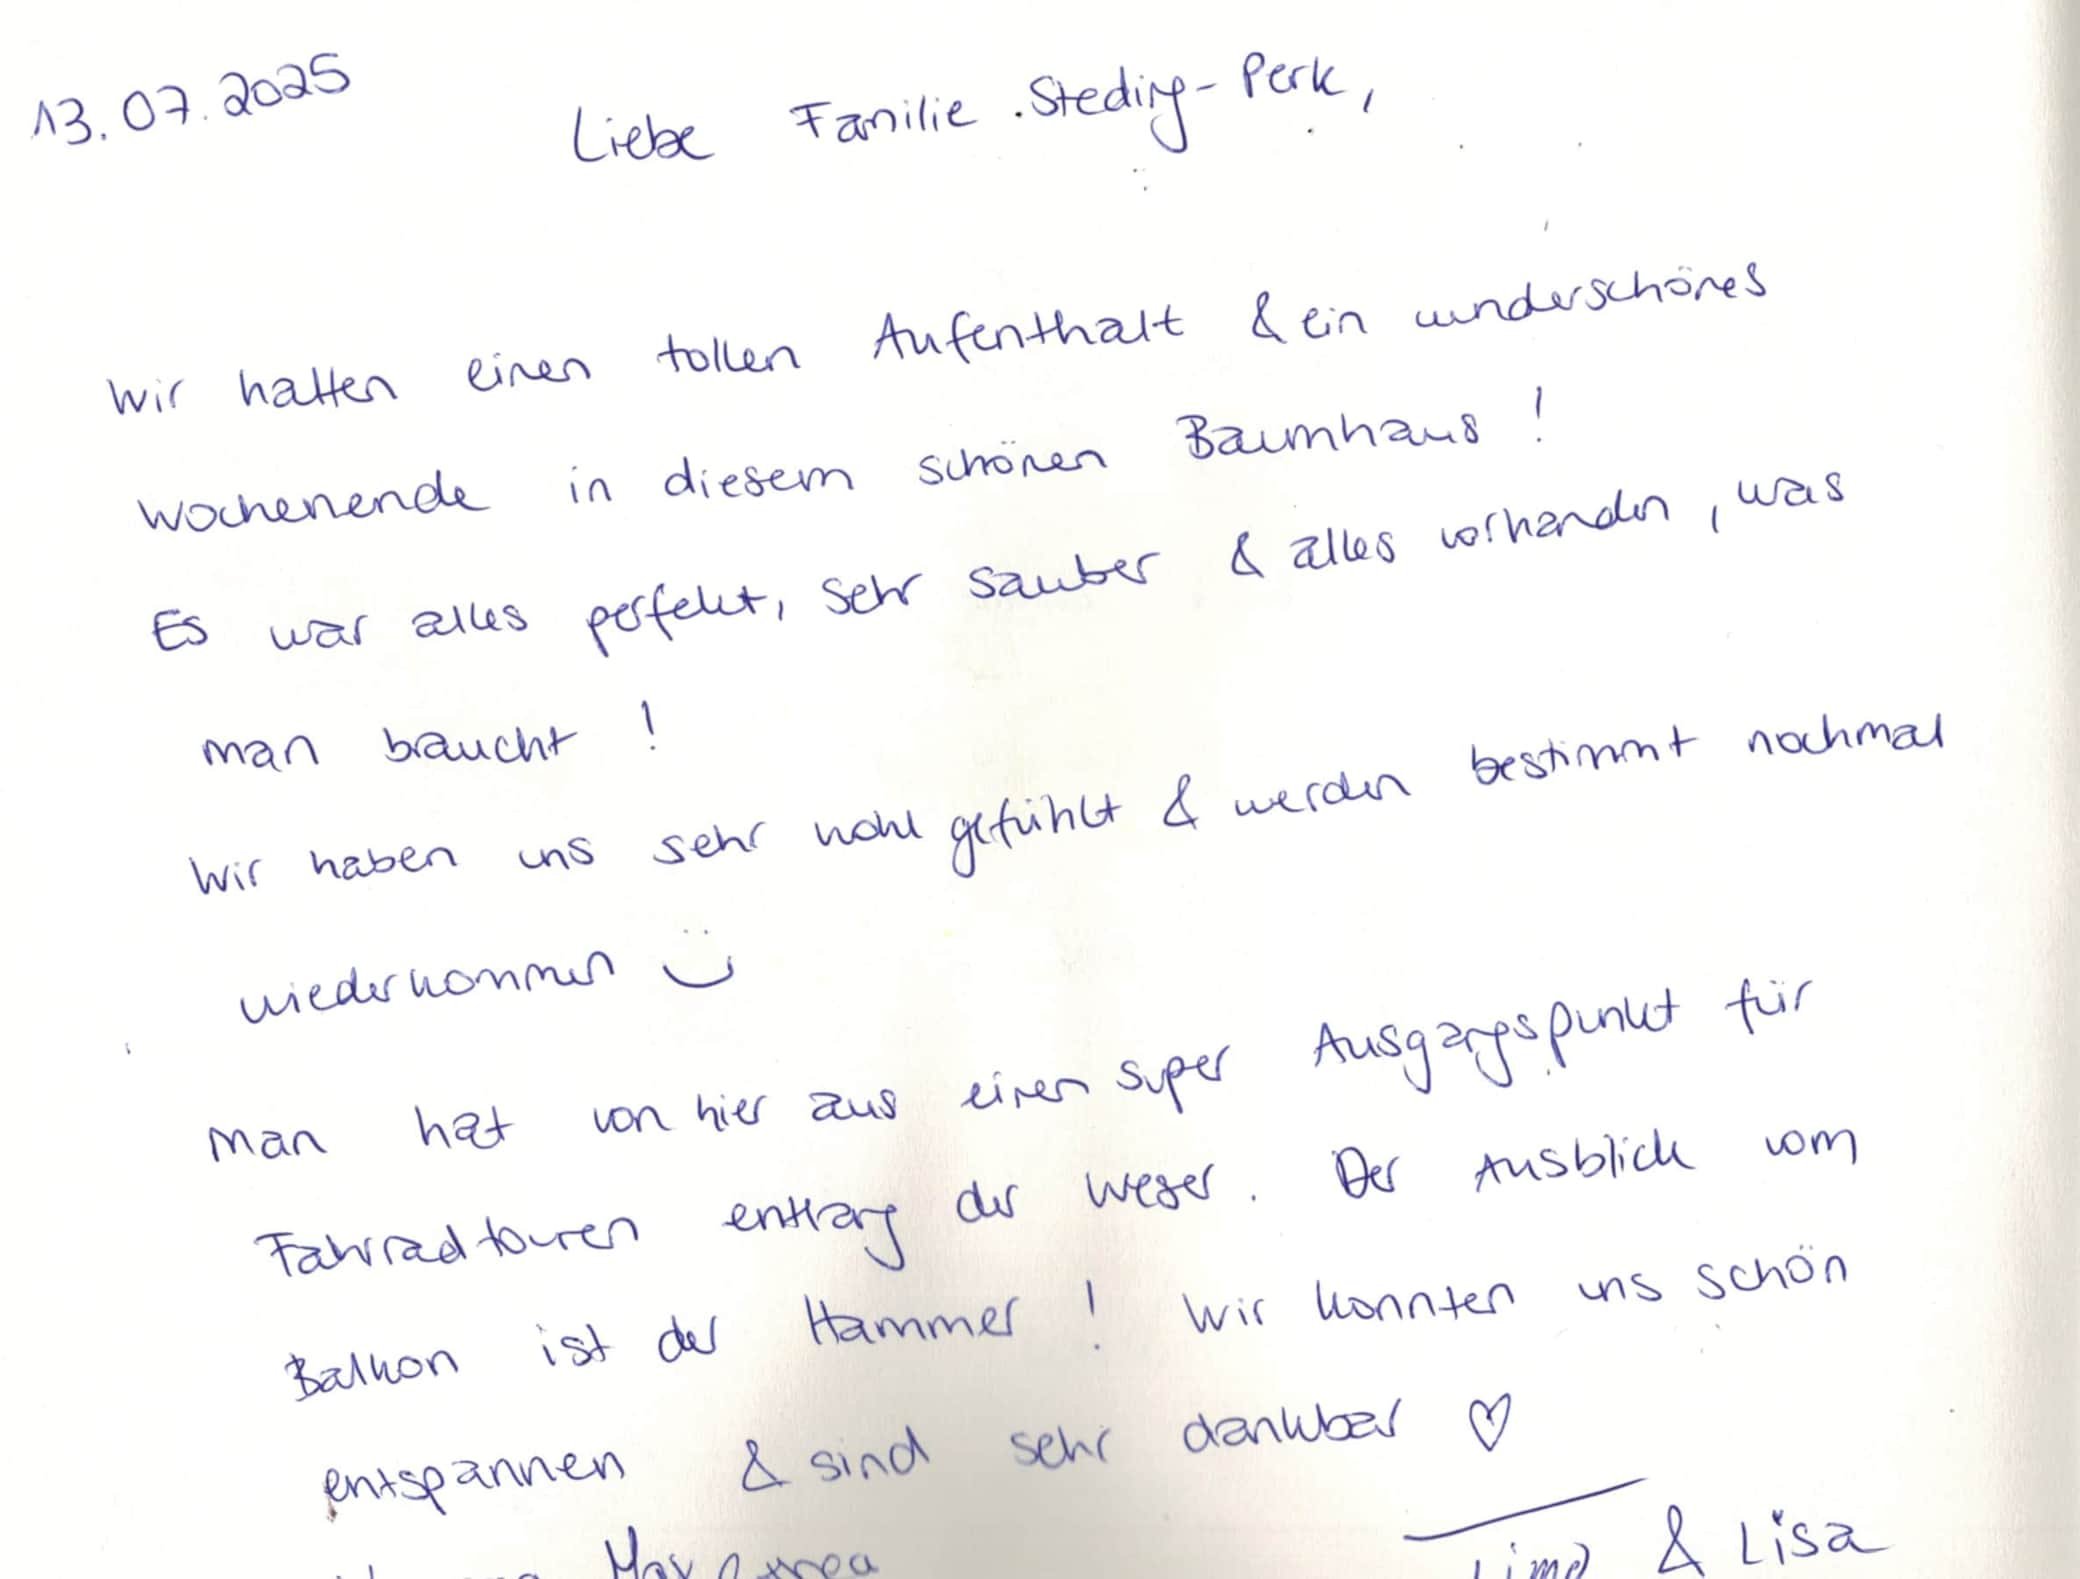 13.07.2025
Liebe Familie Steding-Perk,
Wir hatten einen tollen Aufenthalt & ein wunderschönes
Wochenende in diesem schönen Baumhaus!
Es war alles perfekt, sehr sauber & alles vorhanden, was
man braucht!
Wir haben uns sehr wohl gefühlt & werden bestimmt nochmal
wiederkommen :)
Man hat von hier aus einen super Ausgangspunkt für
Fahrradtouren entlang der Weser. Der Ausblick vom
Balkon ist der Hammer! Wir konnten uns schön
entspannen & sind sehr dankbar ♡
& Lisa